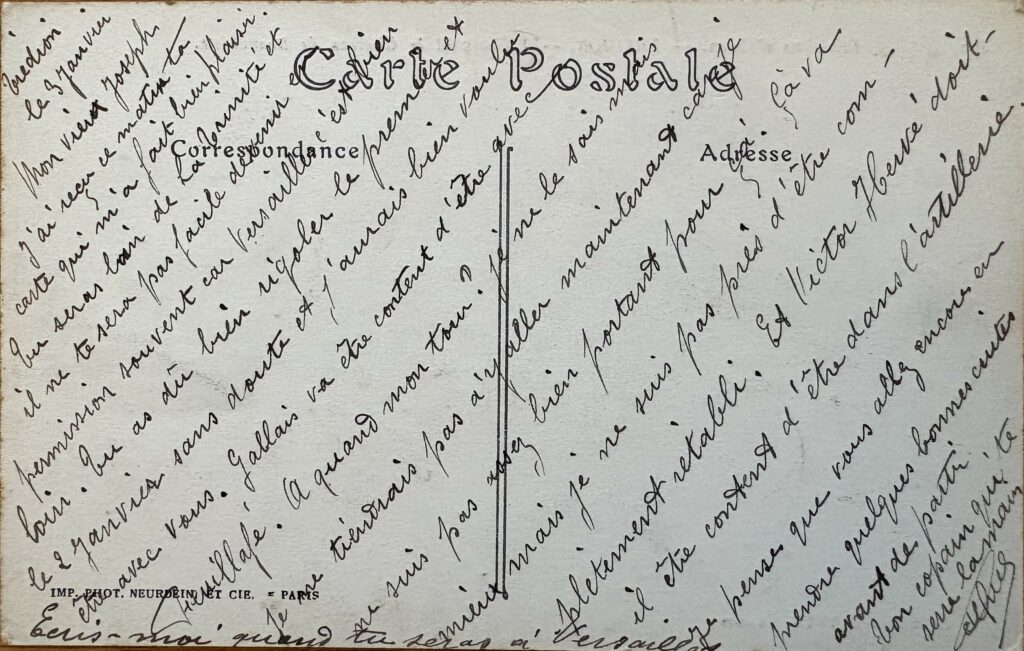 Carte Postale
Correspondance
Adresse
Trédion
le 3 Janvier
Mon vieux Joseph
J'ai reçu ce matin ta
carte qui m'a fait bien plaisir.
Tu seras loin de La Trinité et
il ne te sera pas facile de venir en
permission souvent car Versailles c'est bien
loin. Tu as dû bien rigoler le premier et
le 2 Janvier sans doute et j'aurais bien voulu
être avec vous. Gallais va être content d'être avec
A quand mon tour? Je ne le sais mais
je ne tiendrais pas d'y aller maintenant car je
ne suis pas assez bien portant pour çà. Çà va
mieux mais je ne suis pas près d'être com-
plètement rétabli. Et Victor Hervé doit-
il être content d'être dans l'artillerie.
Je pense que vous allez encore en
prendre quelques bonnes cuites
avant de partir.
bon copain qui te
serre la main
IMP. PHOT. NEURDEIN ET CIE. = PARIS
Ecris-moi quand tu seras à Versailles